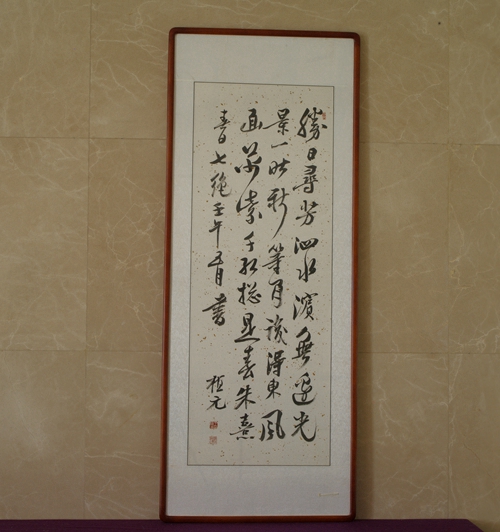 勝日尋芳泗水濱無邊光
景一時新等閒識得東風
面萬紫千紅總是春朱熹
春日七絕壬午書
元